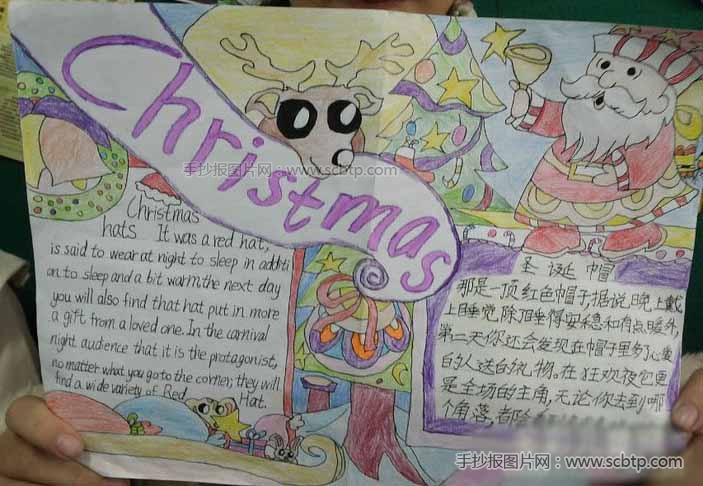 Christmas
手抄报图片网：www.scbtp.com
Christmas
hats It was a red hat,
is said to wear at night to sleep in additi
on to sleep and a bit warm the next day
you will also find that hat put in more
a gift from a loved one. In the carnival
night audience that it is the protagonist,
no matter what you go to the corner, they will
find a wide variety of Red Hat.
圣诞帽
那是一顶红色帽子据说晚上戴
上睡觉除了睡得安稳和有点暖外
第二天你还会发现在帽子里多了心爱
的人送的礼物。在狂欢夜它更
是全场的主角，无论你去到哪
个角落，都
手抄报图片网：www.scbtp.com